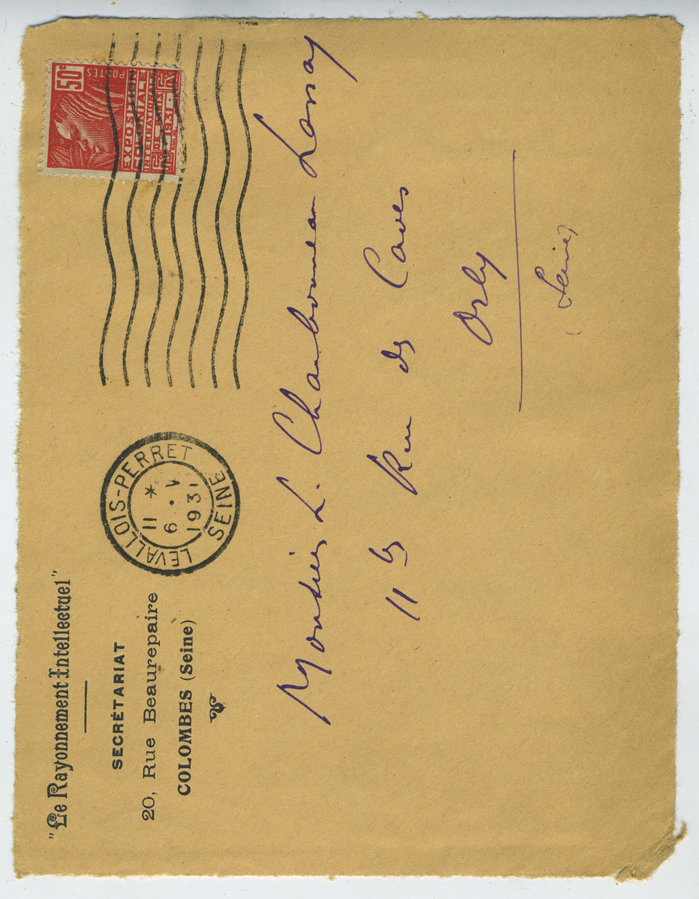 "Le Rayonnement Intellectuel"
SECRÉTARIAT
20, Rue Beaurepaire
COLOMBES (Seine)
LEVALLOIS-PERRET
11 *
6 · V
1931
SEINE
50c
POSTES
EXPOSITION
COLONIALE
INTERNATIONALE
PARIS
1931
Monsieur L. Charbonneau Lassay
11 bis Rue des Caves
Orly
(Seine)